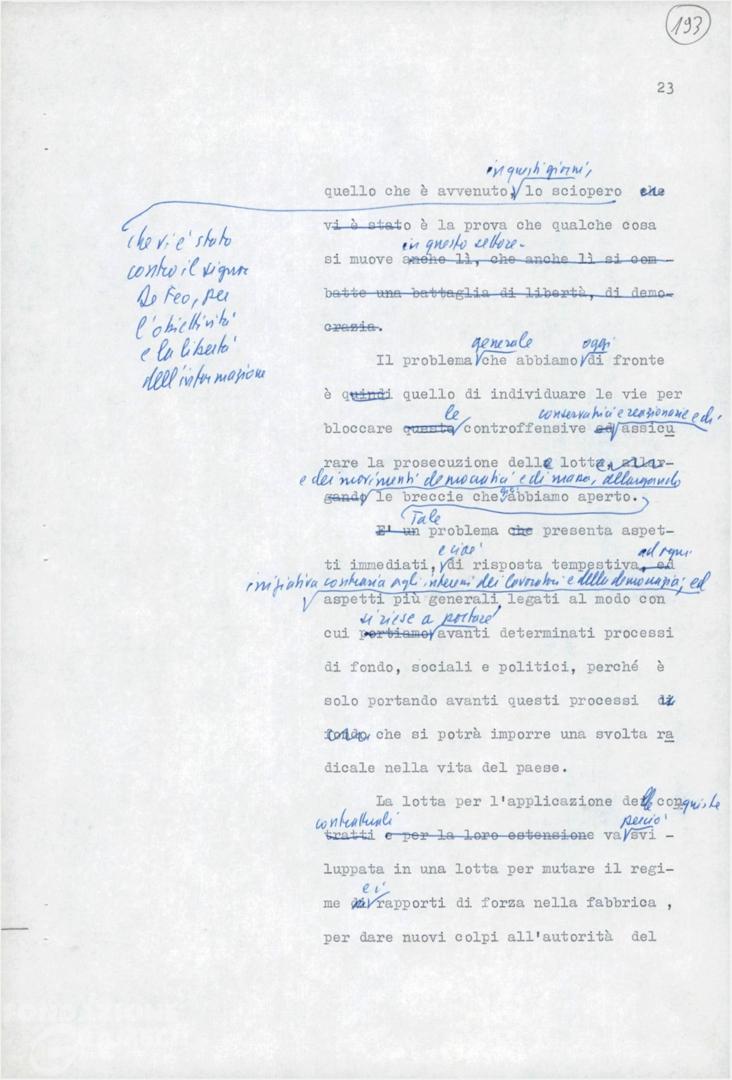 193
23
in questi giorni,
quello che è avvenuto, lo sciopero che
vi è stato è la prova che qualche cosa
in questo settore.
si muove anche lì, che anche lì si com-
batte una battaglia di libertà, di demo-
crazia.
che vi è stato
contro il signor
De Feo, per
l'obiettività
e la libertà
dell'informazione
generale oggi
Il problema che abbiamo di fronte
è quindi quello di individuare le vie per
le conservatrici e reazionarie e di
bloccare questa controffensive ed assicu
rare la prosecuzione delle lotte, allar-
e dei movimenti democratici e di massa, allargando
gando le breccie che già abbiamo aperto.
Tale
E' un problema che presenta aspet-
e cioè ad ogni
ti immediati, di risposta tempestiva, ed
iniziativa contraria agli interessi dei lavoratori e della democrazia; ed
aspetti più generali legati al modo con
si riesce a portare
cui portiamo avanti determinati processi
di fondo, sociali e politici, perché è
solo portando avanti questi processi di
fondo che si potrà imporre una svolta ra
dicale nella vita del paese.
La lotta per l'applicazione delle conquiste
contrattuali perciò
tratti e per la loro estensione va svi -
luppata in una lotta per mutare il regi-
e i
me rapporti di forza nella fabbrica ,
per dare nuovi colpi all'autorità del
FONDAZIONE
GRAMSCI